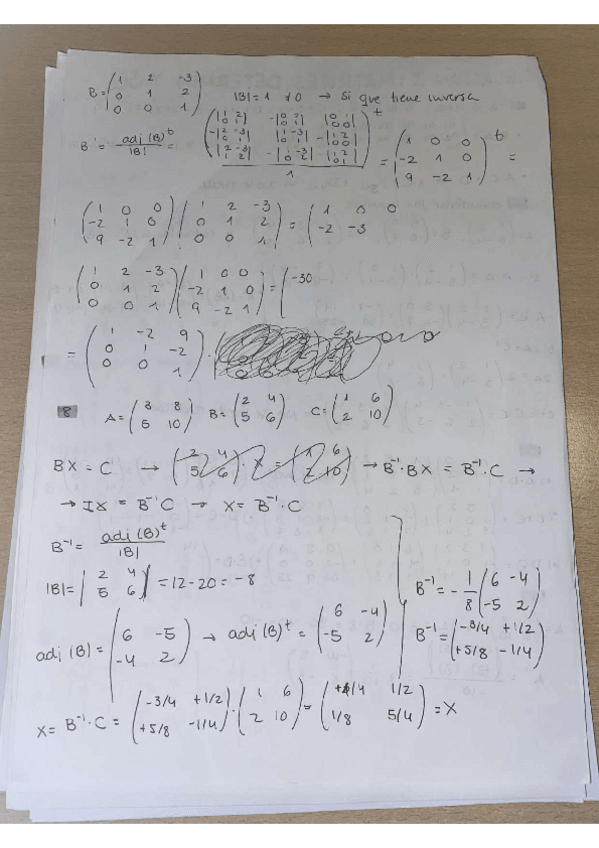 B = (1 2 -3 / 0 1 2 / 0 0 1) |B| = 1 ≠ 0 → Si que tiene inversa
B⁻¹ = adj (B)ᵗ / |B| = (|1 2 / 0 1| -|0 2 / 0 1| |0 1 / 0 0| / -|2 -3 / 0 1| |1 -3 / 0 1| -|1 2 / 0 0| / |2 -3 / 1 2| -|1 -3 / 0 2| |1 2 / 0 1|)ᵗ / 1 = (1 0 0 / -2 1 0 / 9 -2 1)ᵗ =
(1 0 0 / -2 1 0 / 9 -2 1) (1 2 -3 / 0 1 2 / 0 0 1) = (1 0 0 / -2 -3
(1 2 -3 / 0 1 2 / 0 0 1) (1 0 0 / -2 1 0 / 9 -2 1) = (-30
= (1 -2 9 / 0 1 -2 / 0 0 1) ·
8 A = (3 8 / 5 10) B = (2 4 / 5 6) C = (1 6 / 2 10)
BX = C → (2 4 / 5 6) · X = (1 6 / 2 10) → B⁻¹·BX = B⁻¹·C →
→ IX = B⁻¹C → X = B⁻¹·C
B⁻¹ = adj (B)ᵗ / |B|
|B| = |2 4 / 5 6| = 12 - 20 = -8
B⁻¹ = -1/8 (6 -4 / -5 2)
adj (B) = (6 -5 / -4 2) → adj (B)ᵗ = (6 -4 / -5 2)
B⁻¹ = (-3/4 +1/2 / +5/8 -1/4)
X = B⁻¹·C = (-3/4 +1/2 / +5/8 -1/4) · (1 6 / 2 10) = (+1/4 1/2 / 1/8 5/4) = X